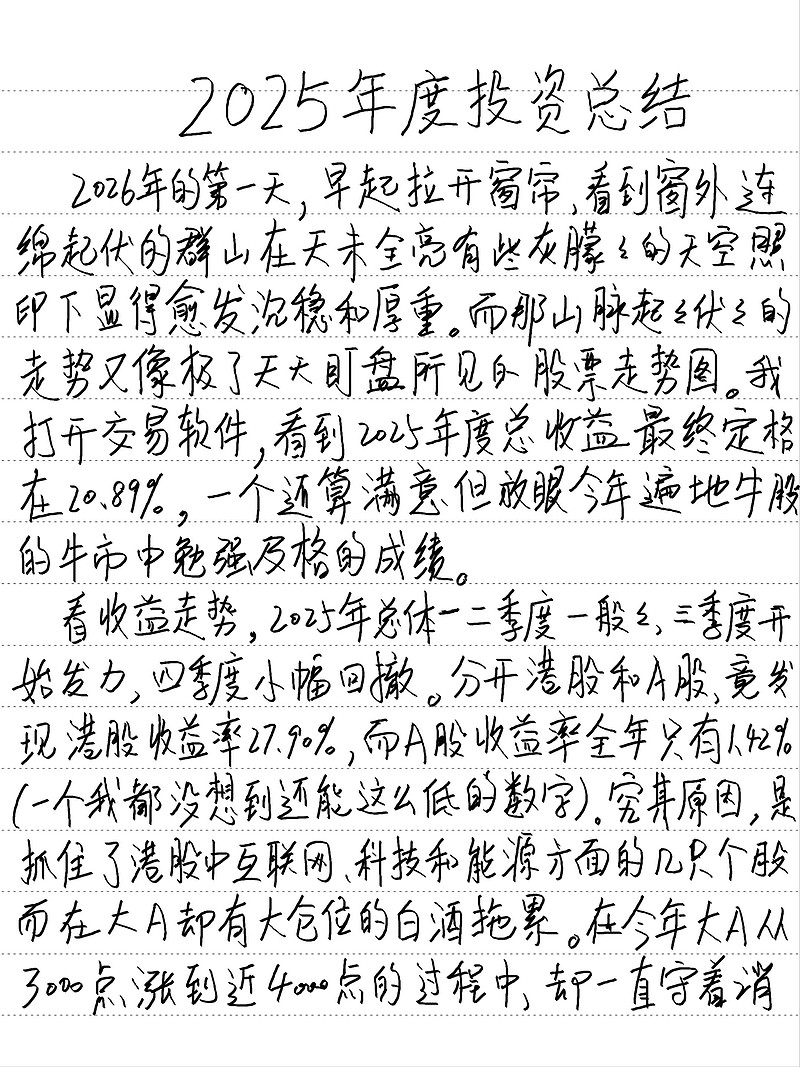 2025年度投资总结
2026年的第一天,早起拉开窗帘,看到窗外连
绵起伏的群山在天未全亮有些灰朦々的天空照
印下显得愈发沉稳和厚重。而那山脉起々伏々的
走势又像极了天天盯盘所见的股票走势图。我
打开交易软件,看到2025年度总收益最终定格
在20.89%,一个还算满意但放眼今年遍地牛股
的牛市中勉强及格的成绩。
看收益走势,2025年总体一二季度一般々,三季度开
始发力,四季度小幅回撤。分开港股和A股,竟发
现港股收益率27.90%,而A股收益率全年只有1.42%
(一个我都没想到还能这么低的数字)。究其原因,是
抓住了港股中互联网、科技和能源方面的几只个股
而在大A却有大仓位的白酒拖累。在今年大A从
3000点涨到近4000点的过程中,却一直守着消